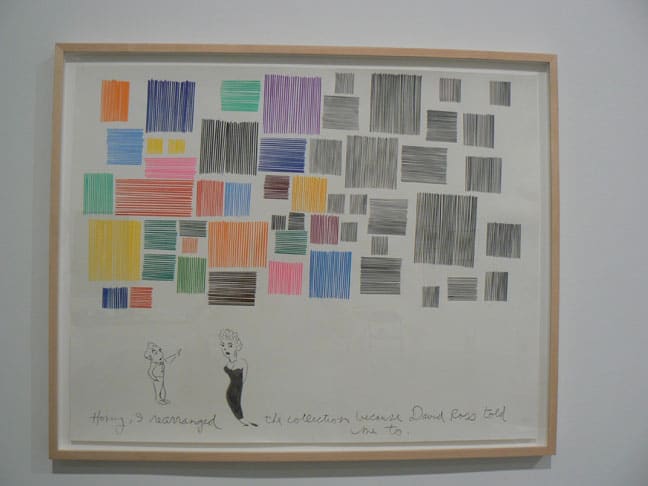 Honey, I rearranged the collection because David Ross told
me to.